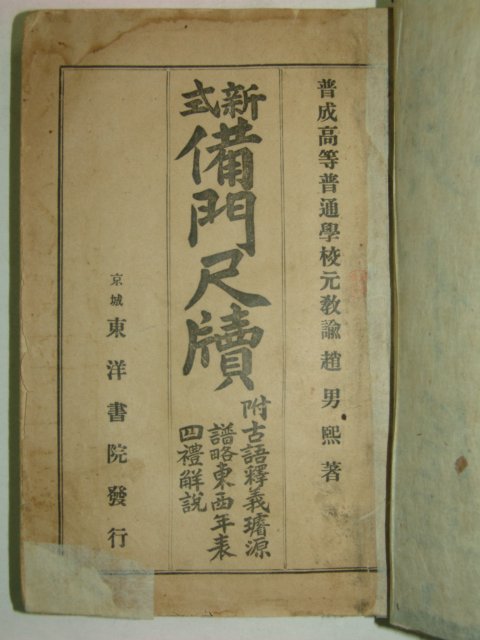 普成高等普通學校元教諭 趙男熙著
新式
備門尺牘
附古語釋義璿源
譜略東西年表
四禮解說
京城 東洋書院發行